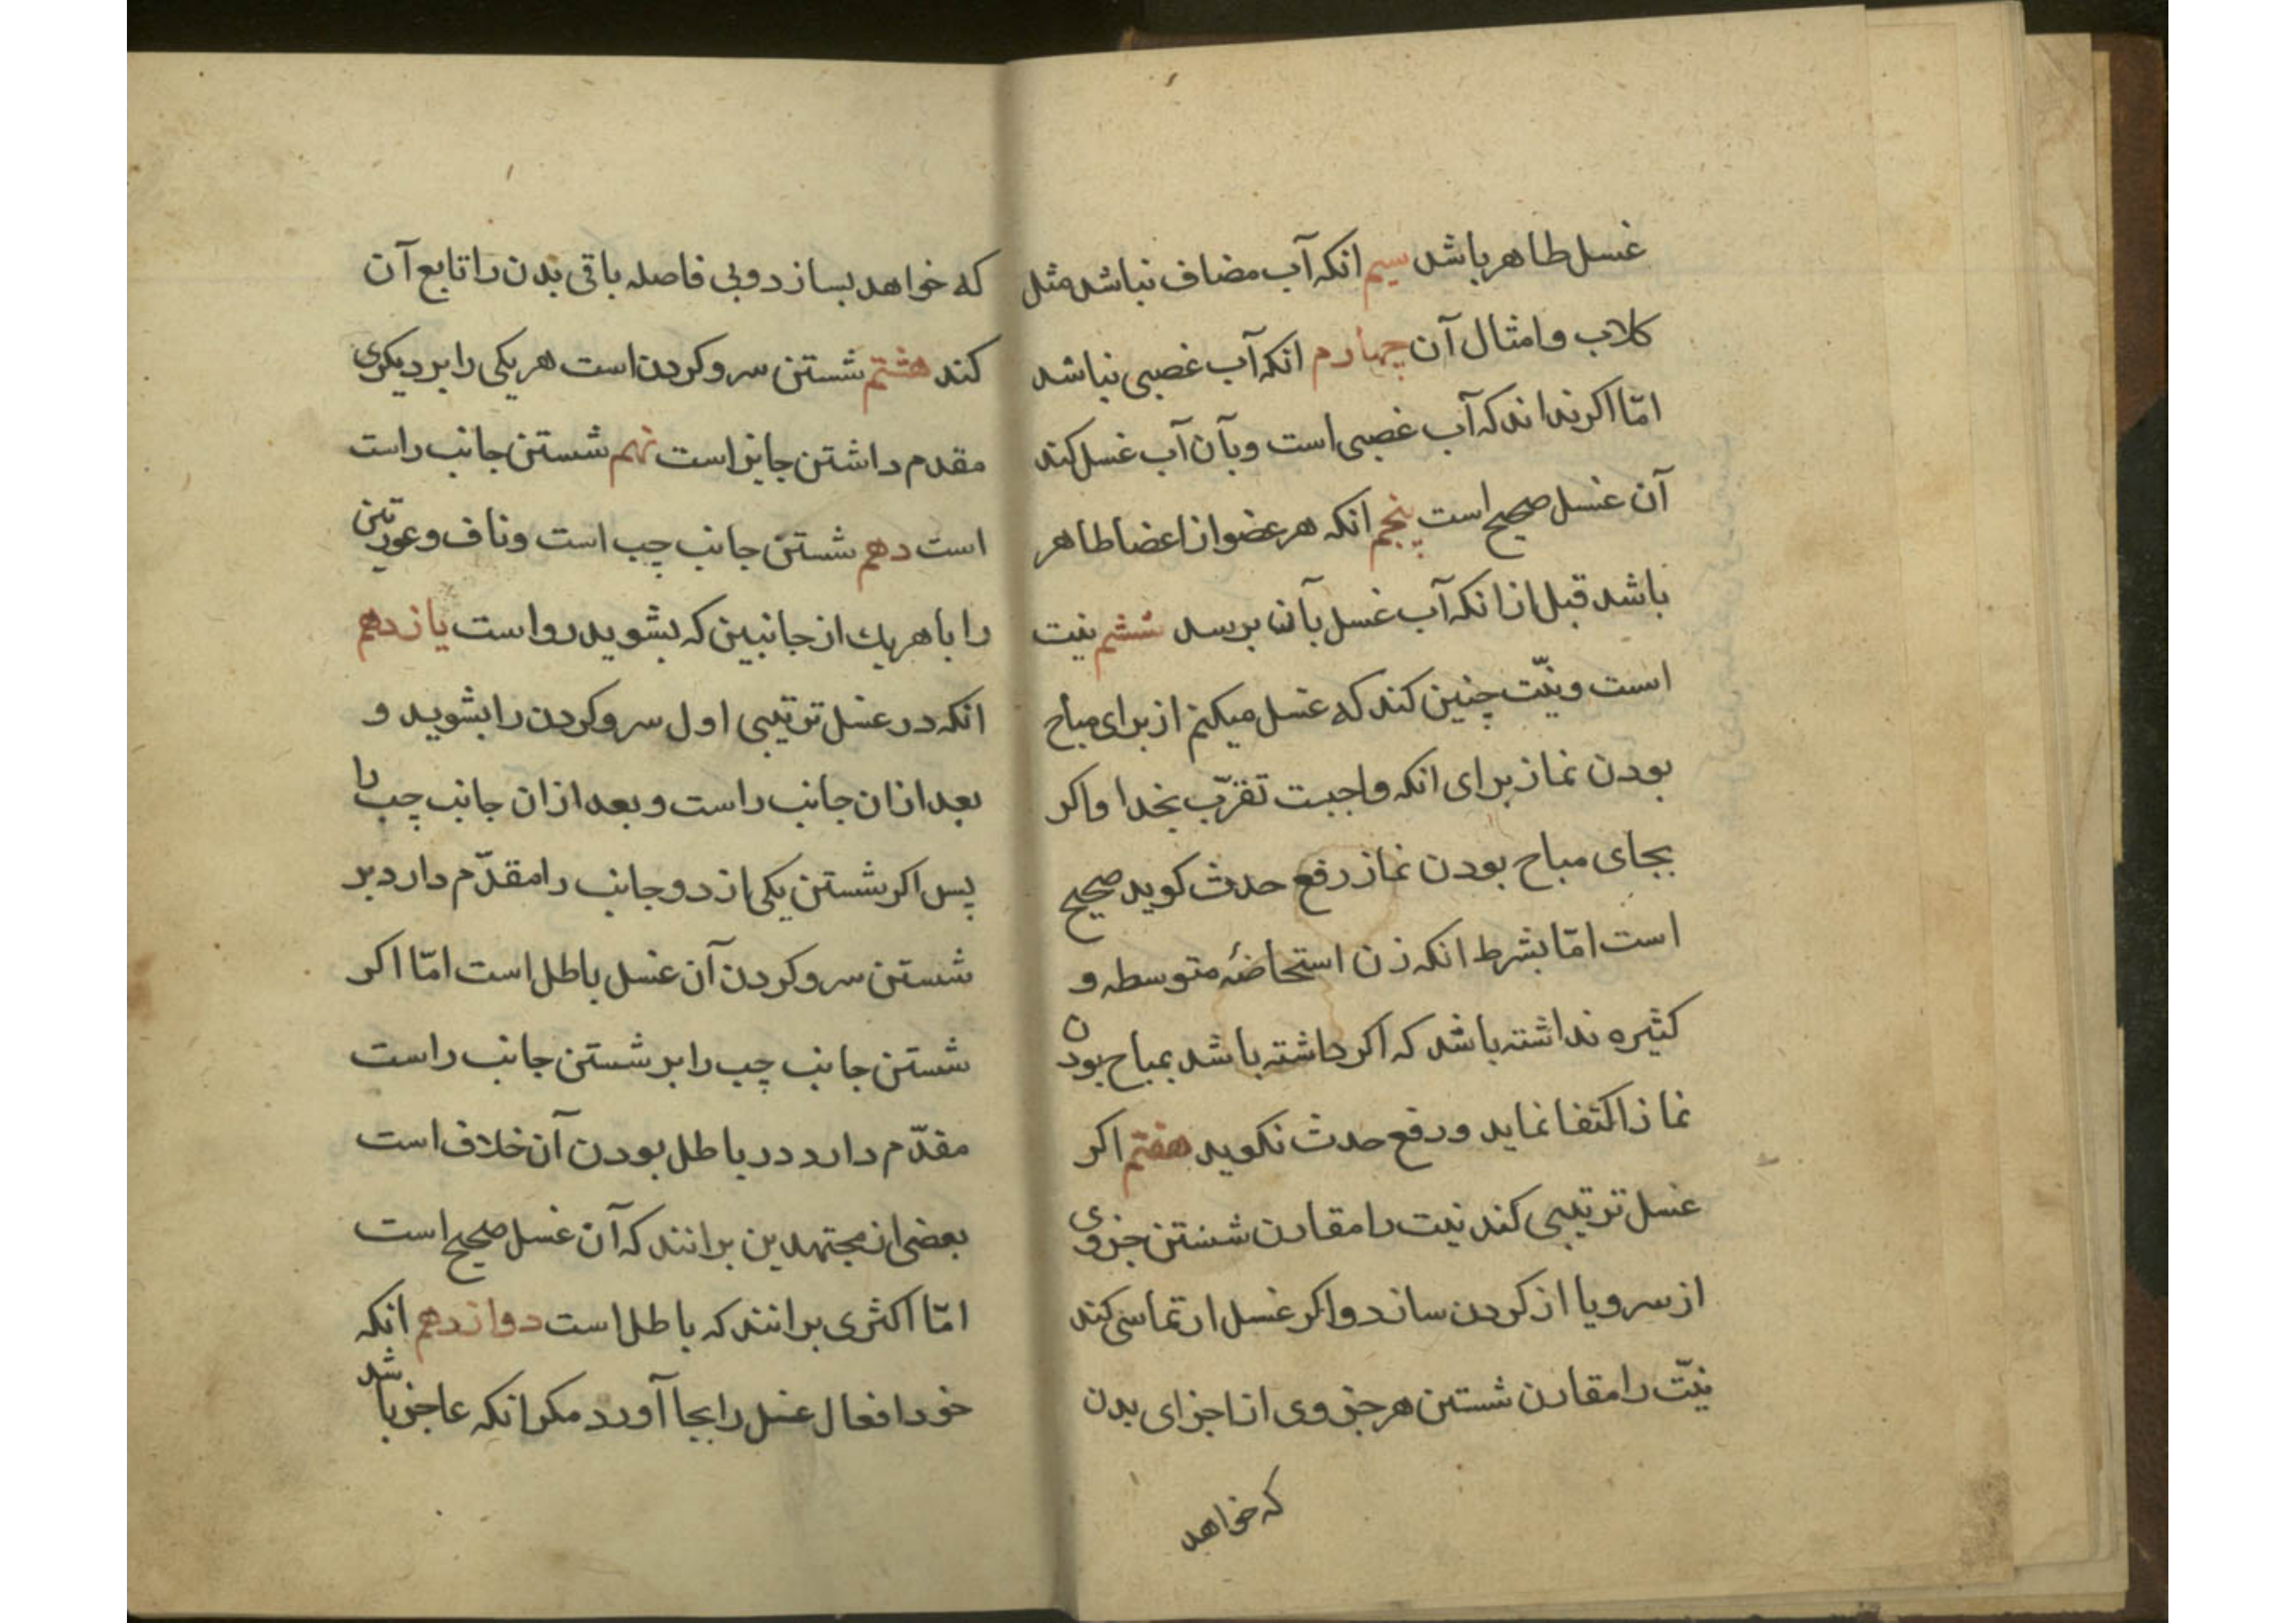 غسل طاهر باشد سیم انکه آب مضاف نباشد مثل
کلاب و امثال آن چهارم انکه آب غصبی نباشد
امّا اکر نداند که آب غصبی است و بآن آب غسل کند
آن غسل صحیح است پنجم انکه هر عضو از اعضا طاهر
باشد قبل از انکه آب غسل بآن برسد ششم نیت
است و نیّت چنین کند که غسل میکنم از برای مباح
بودن نماز برای انکه واجبت تقرّب بخدا واکر
بجای مباح بودن نماز رفع حدث کوید صحیح
است امّا بشرط انکه زن استحاضهٔ متوسطه و
کثیره نداشته باشد که اکر داشته باشد بمباح بودن
نماز اکتفا نماید و رفع حدث نکوید هفتم اکر
غسل ترتیبی کند نیت را مقارن شستن جزوی
از سر و یا از کردن سازد و اکر غسل ارتماسی کند
نیّت را مقارن شستن هر جزوی از اجزای بدن
که خواهد
که خواهد بسازد و بی فاصله باقی بدن را تابع آن
کند هشتم شستن سر و کردن است هر یکی را بر دیکری
مقدم داشتن جایز است نهم شستن جانب راست
است دهم شستن جانب چب است و ناف و عورتین
را با هر یك از جانبین که بشوید رواست یازدهم
انکه در غسل ترتیبی اول سر و کردن را بشوید و
بعد از ان جانب راست و بعد از ان جانب چب را
پس اکر شستن یکی از دو جانب را مقدّم دارد بر
شستن سر و کردن آن غسل باطل است امّا اکر
شستن جانب چب را بر شستن جانب راست
مقدّم دارد در باطل بودن آن خلاف است
بعضی از مجتهدین برانند که آن غسل صحیح است
امّا اکثری برانند که باطل است دوازدهم انکه
خود افعال غسل را بجا آورد مکر انکه عاجز باشد